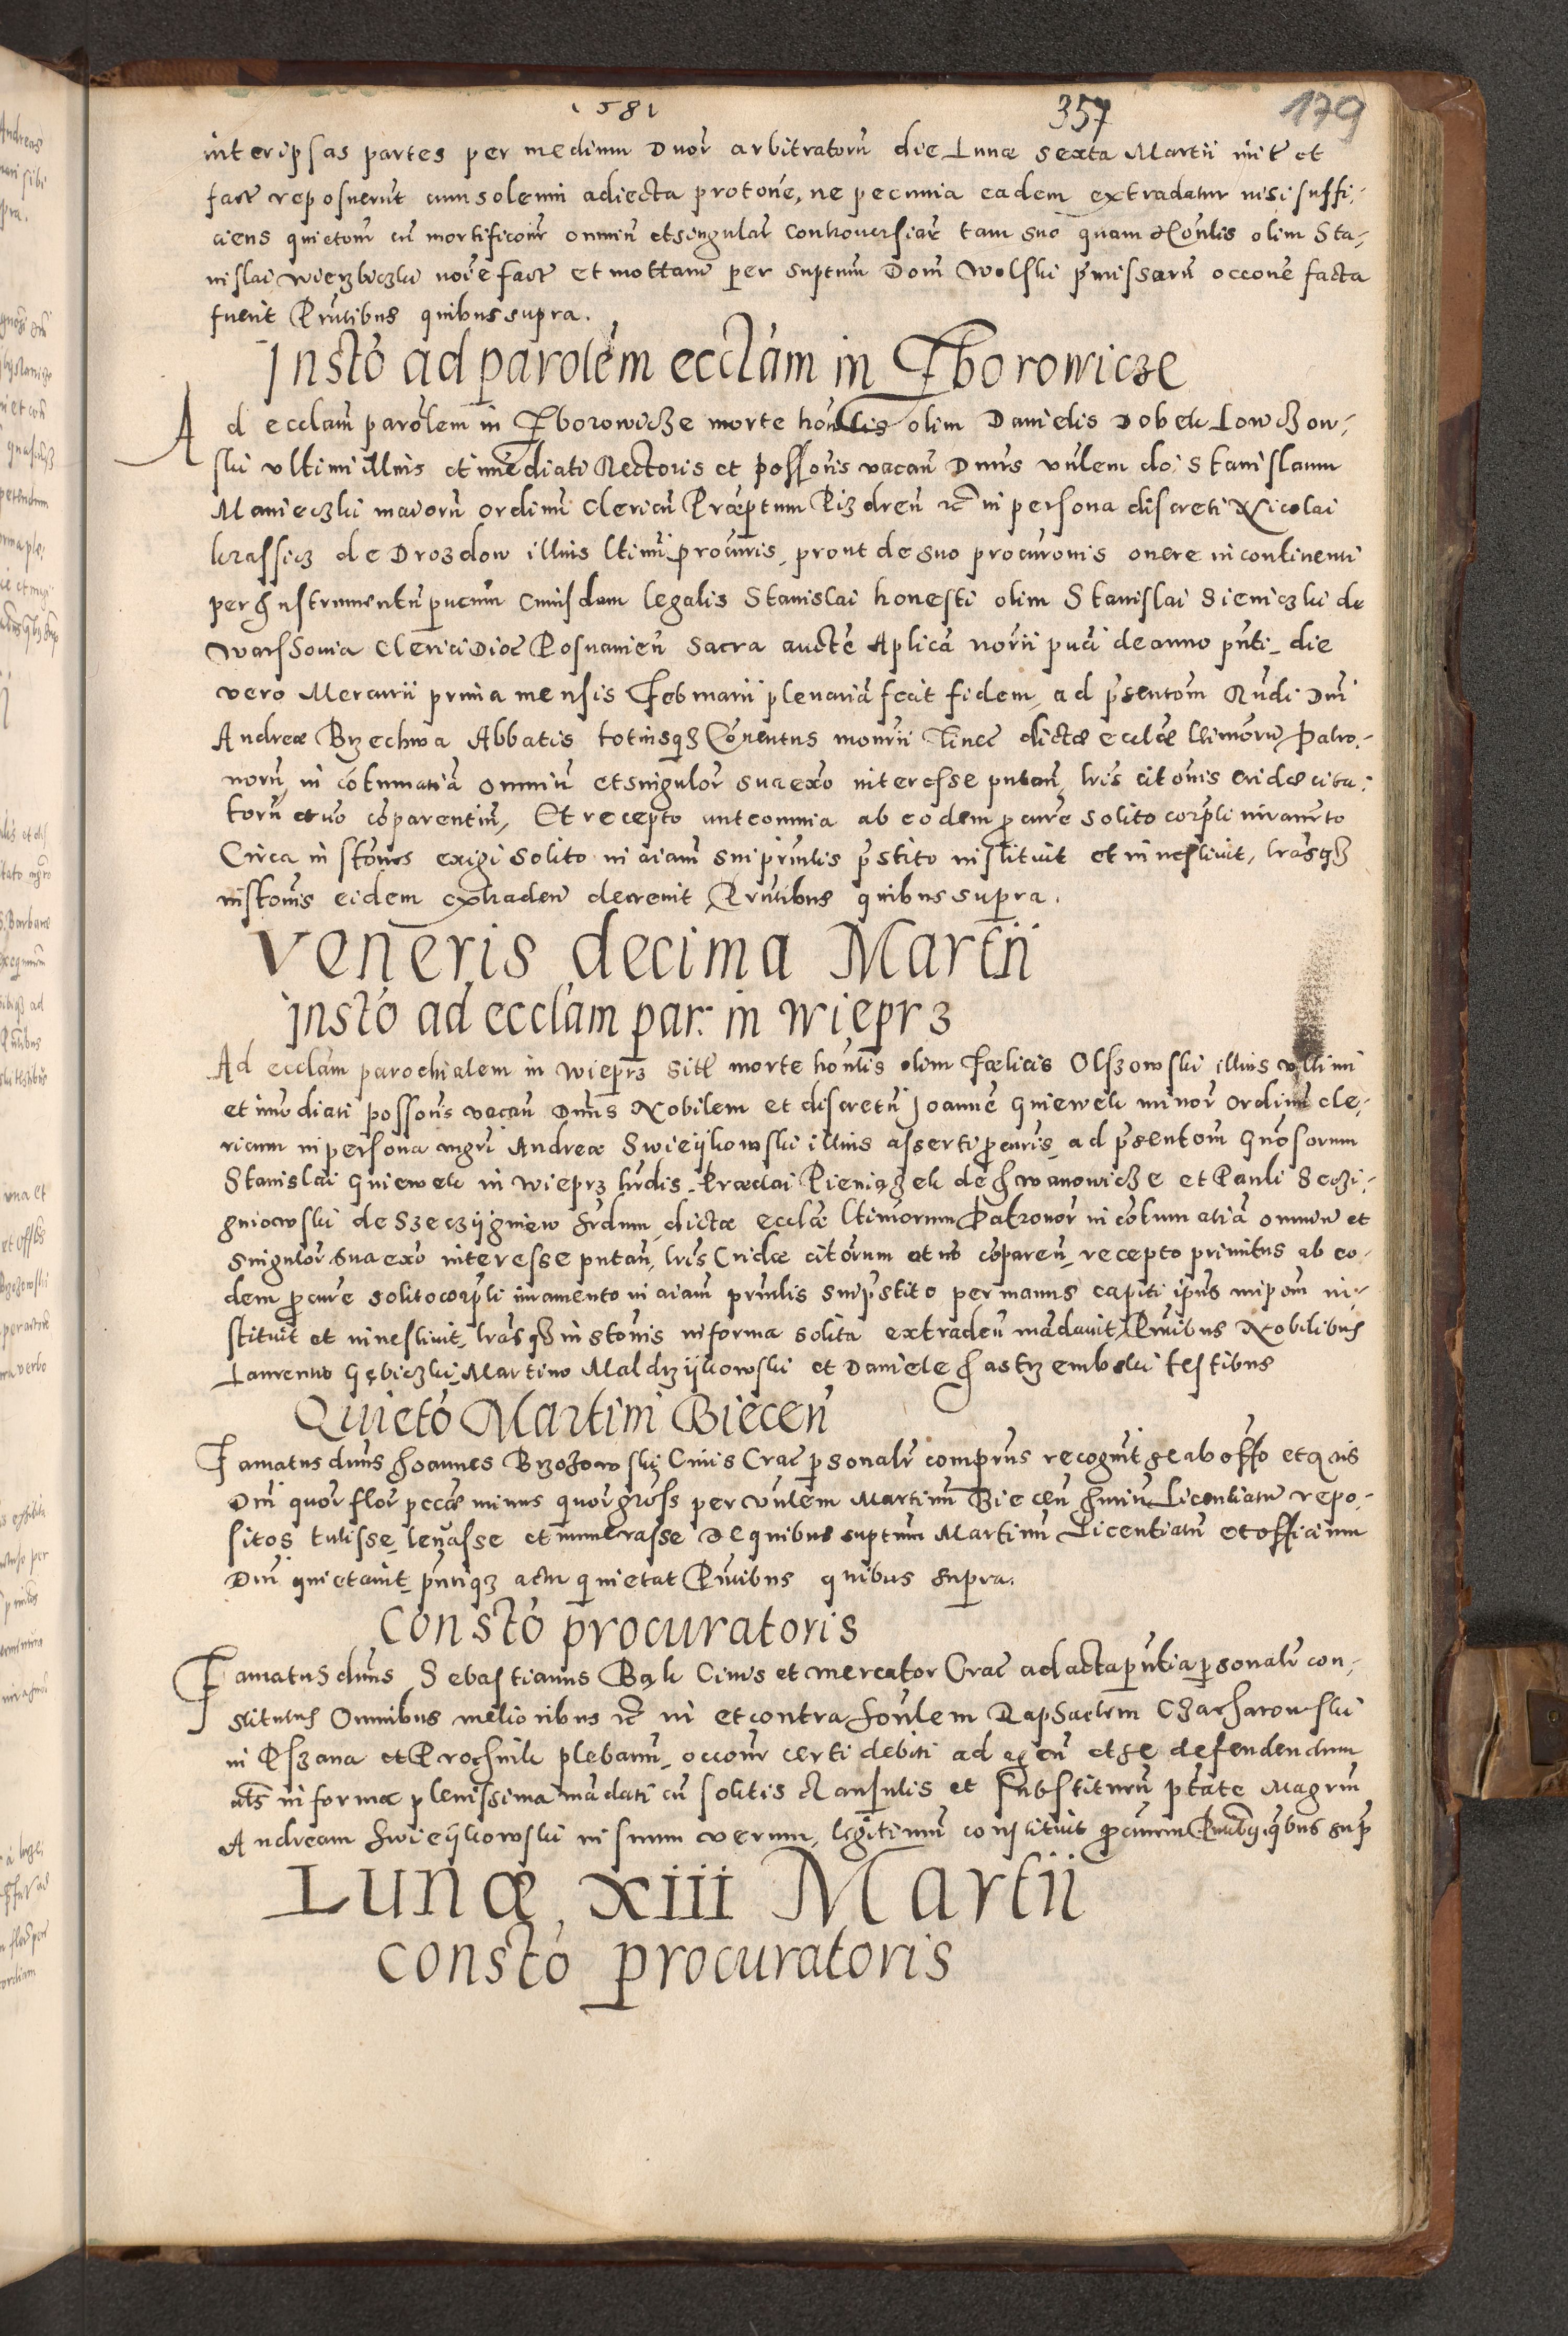 1581 357 179
inter ipsas partes per medium Duor arbitratorũ die Lunæ sexta Martii init et
fact reposuerũt cum solemni adiecta protone, ne pecunia eadem extradatur nisi suffi-
ciens quietom cũ mortificom omniũ et singular controversiar tam suo quam Honlis olim Sta-
nislai Wierzbiczki noie fact et per suptum Dom Wolski pmissorũ occone facta
fuerit Pntibus quibus supra.
Insto ad parolem ecclam in Tborowicze
Ad ecclam parolem in Tborowicze morte honlis olim Danielis Dobek Lowczow-
ski ultimi illius et imediati Rectoris et possoris vacan Dnus vnlem do: Stanislaum
Manieczki maiorũ ordinũ Clericũ Præptum Pizdreñ etc in persona discreti Nicolai
krassicz de Drozdow illius ltimi procuris, prout de suo procuronis onere in continenti
per Instrumentũ pucum eiusdem legalis Stanislai honesti olim Stanislai Sieniczki de
Warssovia Clerici Dioc Posnanieñ Sacra aucte Aplica norii puci de anno pnti die
vero Mercurii prima mensis Februarii plenariã fecit fidem, ad psentom Rndi Dni
Andreæ Brzechwa Abbatis totiusqz Conventus monrii Tinec dictæ ecclæ ltimorũ Patro-
norũ, in cotumatiã omniũ et singulor sua exo interesse putan, lris citonis cridæ cita-
torũ et no coparentiũ, Et recepto ante omnia ab eodem procure solito corpli iuramto
Circa instones exigi solito in aiam sui prinlis pstito instituit et inuestiuit, lrasqz
instonis eidem extraden decrevit Pntibus quibus supra.
Veneris decima Martii
Insto ad ecclam par: in Wieprz
Ad ecclam parochialem in Wieprz Sitt morte honlis olim Fœlicis Olszowski illius ultimi
et imediati possoris vacan Dnus Nobilem et discretũ Joannẽ Gniewek minor ordinũ cle-
ricum in persona mgri Andreæ Swieykowski illius asserti procuris, ad psentom Gnosorum
Stanislai Gniewek in Wieprz hrdis, Præclai Pieniązek de Iwanowicze et Pauli Seczi-
gniowski de Szeczygniew hrdum, dictæ ecclæ ltimorum Patronor in cotumatiã omniũ et
singulor sua exo interesse putan, lris Cridæ citorum et no coparen, recepto primitus ab eo-
dem procure solito corpli iuramento in aiam prinlis sui pstito per manus capiti ipius impom in-
stituit et inuestiuit, lrasqz instonis in forma solita extraden mãdauit, Pntibus Nobilibus
Laurentio Gębiczki, Martino Maldrzykowski et Daniele Jastrzembski testibus
Quieto Martini Biecen
Famatus dnus Joannes Brzozowski Civis Crac personalr comprns recognit se ab offo et Actis
Dni quor flor pccæ minus quor gross per vnlem Martinũ Biecen Iuriũ Licentiatũ repo-
sitos tulisse, levasse et numerasse De quibus suptum Martinũ Licentiatũ et officium
Dni quietauit pntiqz actu quietat Pntibus quibus supra.
Consto procuratoris
Famatus dnus Sebastianus Bąk Civis et mercator Crac ad acta pntia personalr con-
stitutus Omnibus melioribus etc in et contra honlem Raphaelem Czacharowski
in Pszana et Prochnik plebanũ, occom certi debiti ad agen et se defendendum
als in forma plenissima mãdati cũ solitis clausulis et substituen ptate Magrũ
Andream Swieykowski in suum verum, legitimũ constituit procurem Pntibus qbus sup
Lunæ XIII Martii
Consto procuratoris